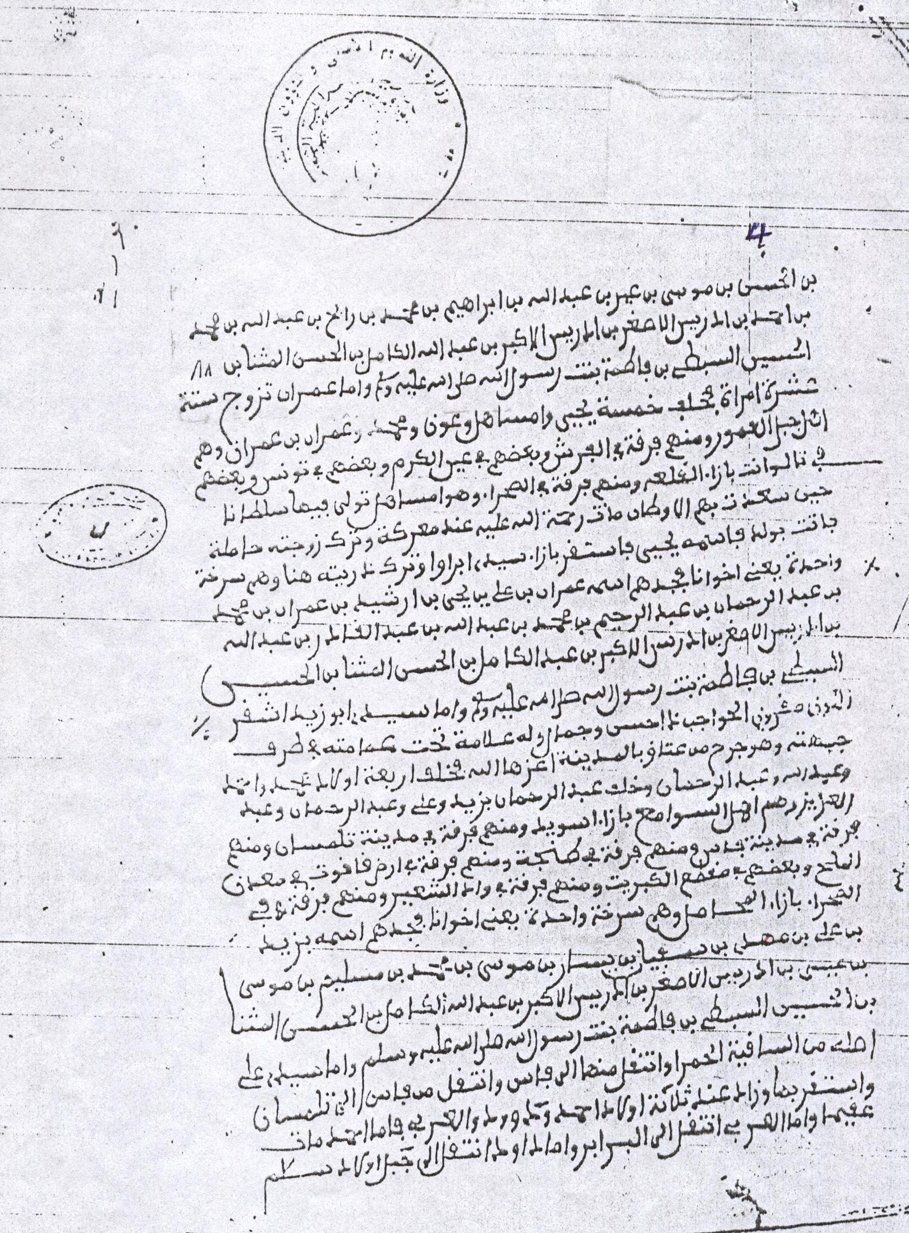 وزارة التعليم الأصلي والشؤون الدينية
4
بن الحسن بن موسى بن عمر بن عبد الله بن ابراهيم بن محمد بن رابح بن عبد الله بن محمد
بن احمد بن ادريس الاصغر بن ادريس الاكبر بن عبد الله الكامل بن الحسن المثنا بن
الحسين السبطي بن فاطمة بنت رسول الله صلى الله عليه وسلم واما عمران تزوج ستة
عشرة امراة فخلف خمسة يحيى وامساهل وعون ومحمد وعمران بن عمران وهم
اهل جبل العمور ومنهم فرقة في العرش وبعضهم في عين الكرم وبعضهم في تونس وبعضهم
في تالوانت بازاء القلعه ومنهم فرقة في الصحراء وهو امساهل تولى فيها سلطانا
حين سعدت بهم الاوطان مات رحمة الله عليه عند معركة وترك زوجته حاملة
فاتت بولد فاسمه يحيى فاستقر بازاء سيدي ابراوا وترك ذريته هنا وهم سرخة
واحدة يعني اخوانا فجدهم اسمه عمران بن علي بن يحيى بن ارشيد بن عمران بن محمد
بن عبد الرحمان بن عبد الرحيم بن محمد بن عبد الله بن عبد القادر بن عبد الله
بن ادريس الاصغر بن ادريس الاكبر بن عبد الكامل بن الحسن المثنا بن الحسين
السبطي بن فاطمة بنت رسول الله صلى الله عليه وسلم واما سيدي ابو زيد اشقر
اللون مقرون الحواجب ذا احسن وجمال وله علامة تحت عمامته في طرف
جبهته وهو جرح من عتاو بالمدينة اعزها الله فخلف اربعة اولاد محمد واحمد
وعبد الله وعبد الرحمان وخلف عبد الرحمان يزيد وعلي وعبد الرحمان وعبد
العزيز وهم اهل السوامع بازاء اسويد ومنهم فرقة في مدينة تلمسان ومنهم
فرقة في مدينة فاس ومنهم فرقة في طانجة ومنهم فرقة في ارض قاقوت في معدن
المالح وبعضهم في مقطع الكبريت ومنهم فرقة في واد الشعير ومنهم فرقة في
الصحراء بازاء وهم سرخة واحدة يعني اخوانا فجدهم اسمه يزيد
بن علي بن مهدي بن سفيان بن يسار بن موسى بن محمد بن مسليم بن موسى
بن عيسى بن ادريس الاصغر بن ادريس الاكبر بن عبد الله الكامل بن الحسن المثنا
بن الحسين السبطي بن فاطمة بنت رسول الله صلى الله عليه وسلم واما سيدي علي
اصله من الساقية الحمرا وانتقل منها الى فاس وانتقل من فاس الى تلمسان
واستقر بها وزاد عنده ثلاثة اولاد احمد والعربي فاما احمد مات
عقيما واما العربي انتقل الى البرابر واما انتقل الى جبل اولاد سلام